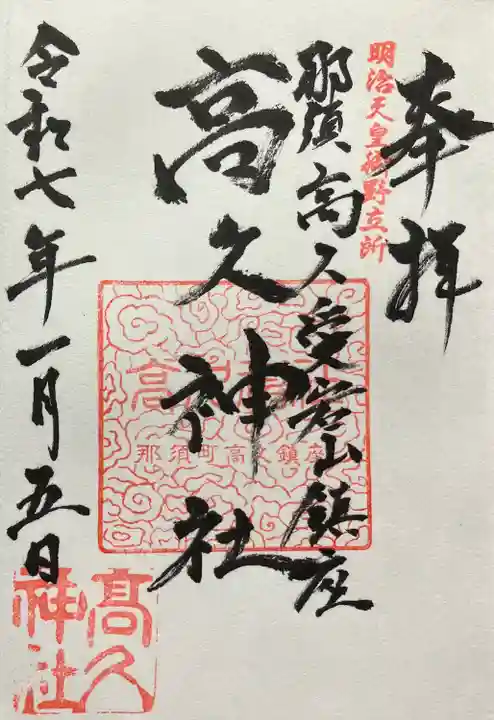 奉拝
明治天皇御野立所
那須高久愛宕山鎮座
高久神社
高久神社
那須町高久鎮座
令和七年一月五日
高久
神社